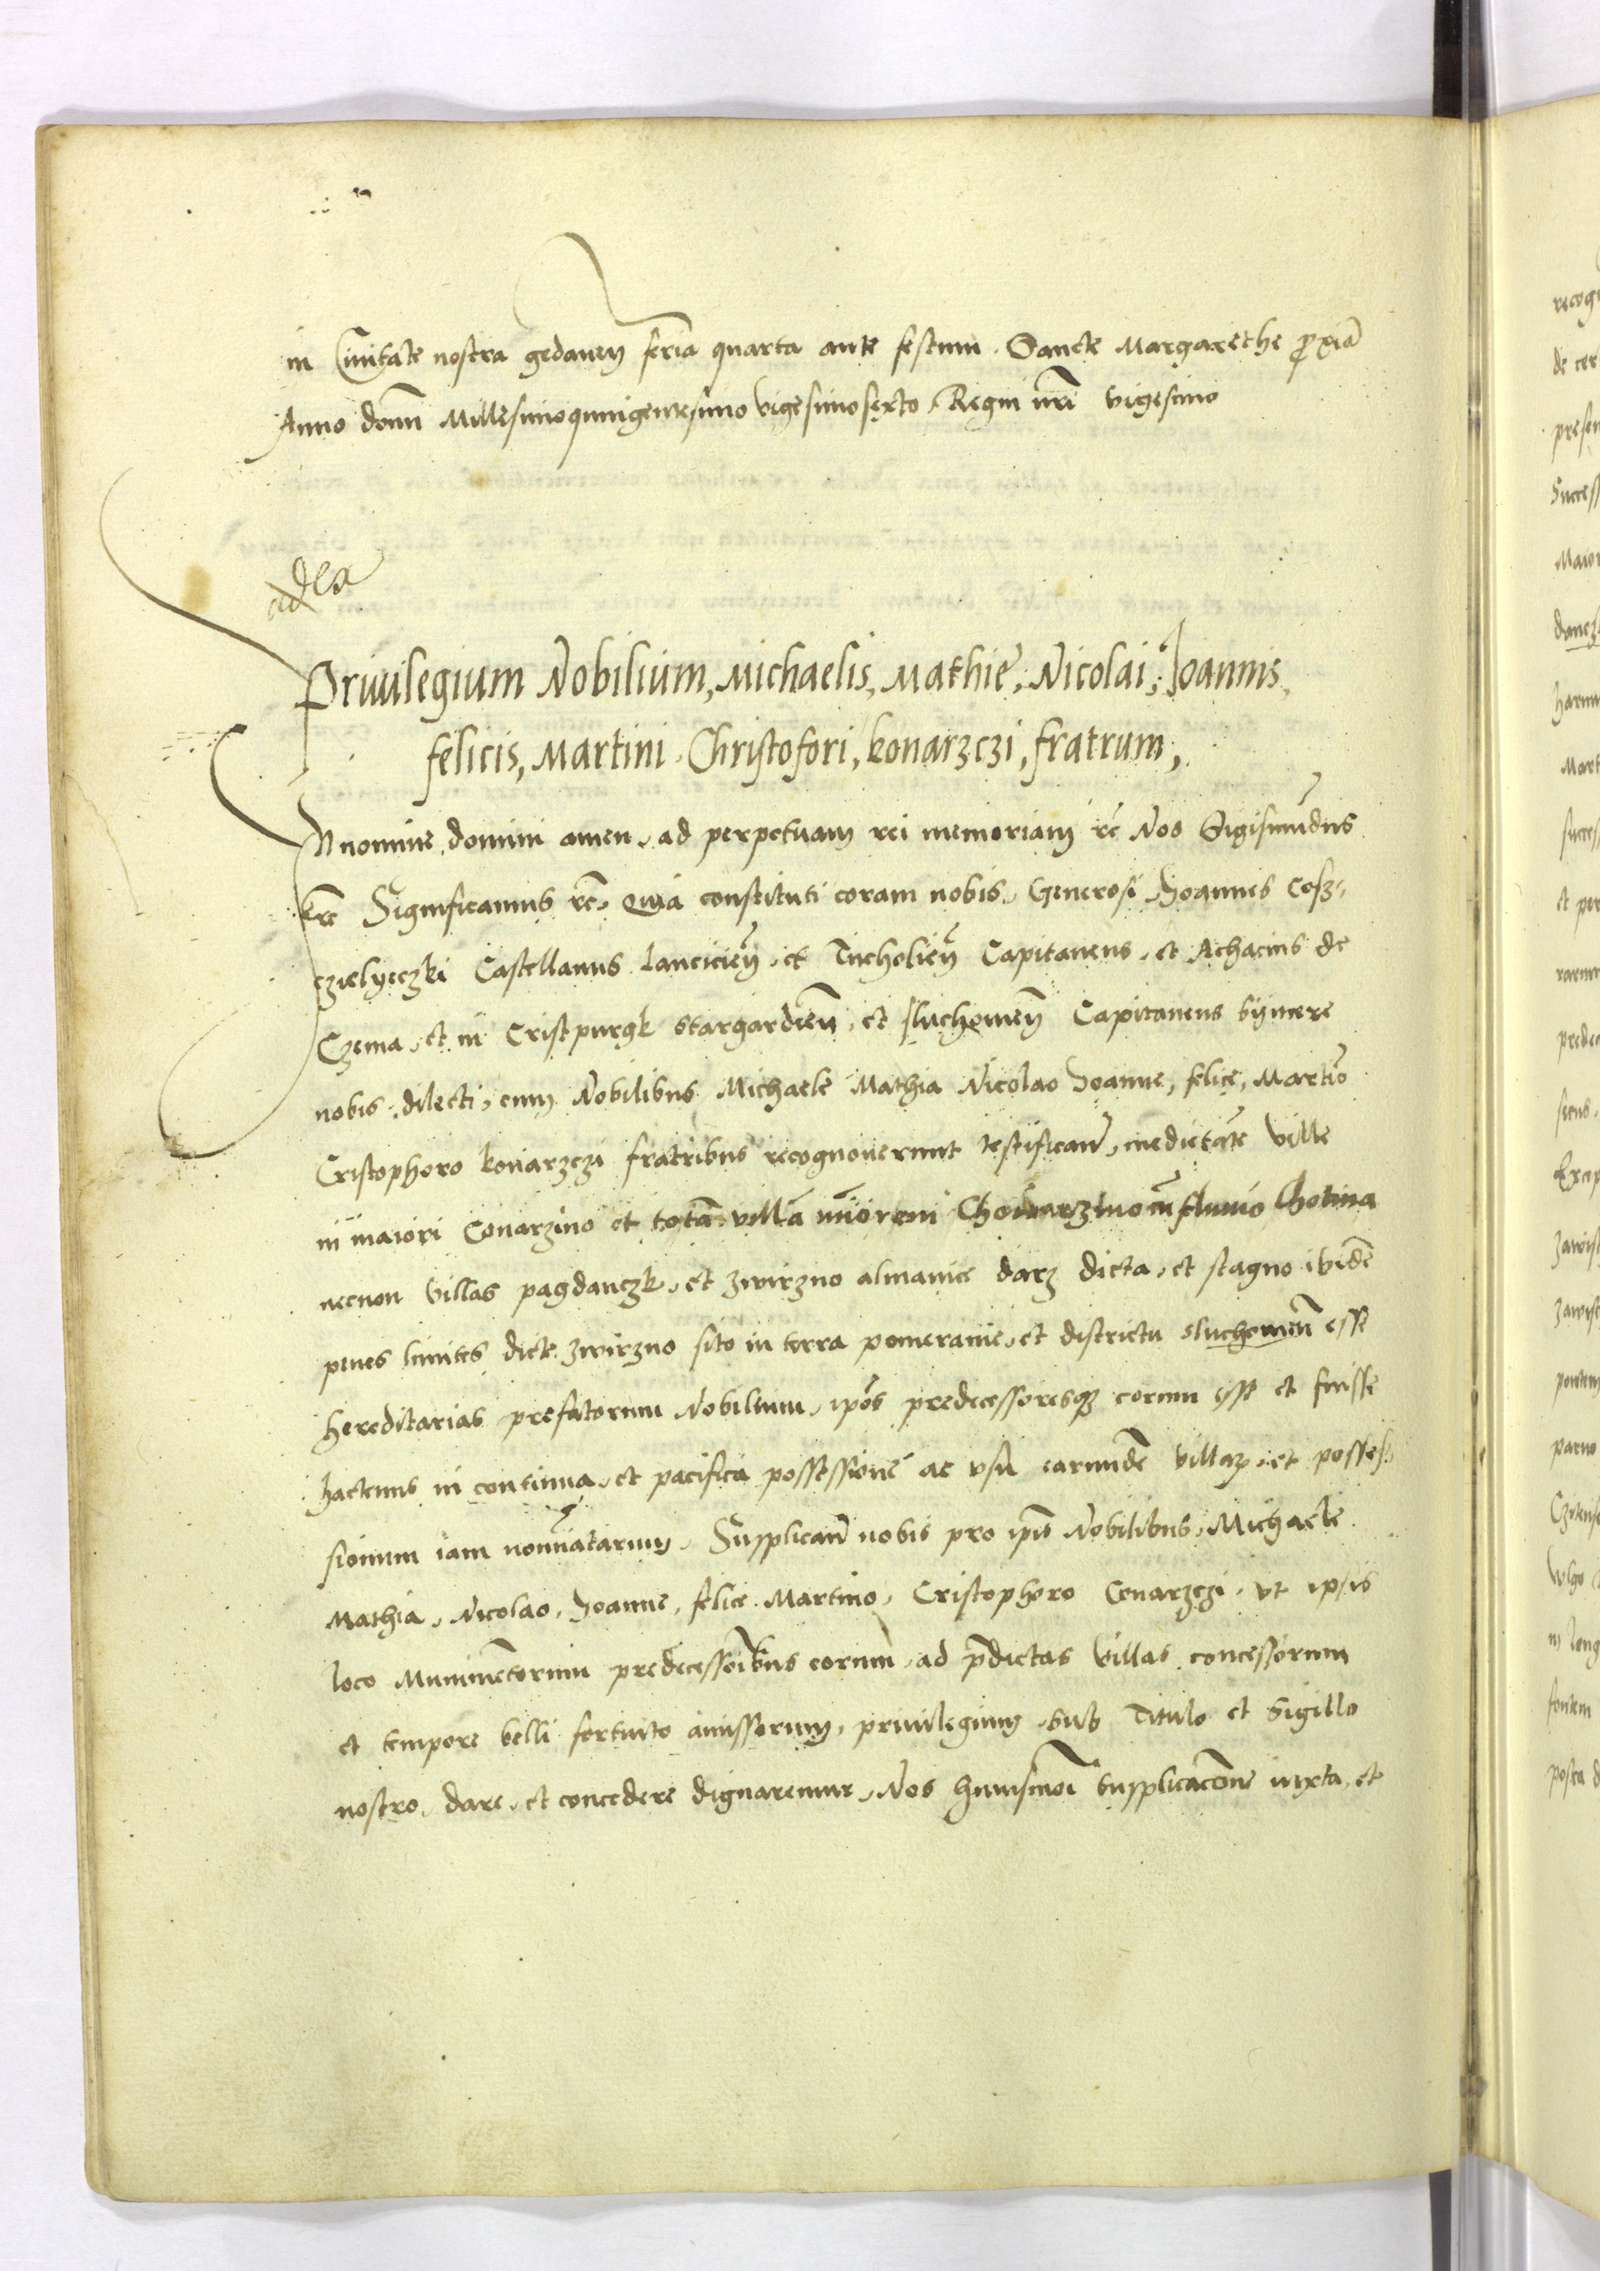 in Ciuitate nostra gedanen feria quarta ante festum Sancte Margarethe proxia
Anno domi Millesimoquingentesimo vigesimosexto, Regni nri vigesimo
Priuilegium Nobilium, Michaelis, Mathie, Nicolai, Joannis,
felicis, Martini Christofori, konarzczi, fratrum,
In nomine domini amen, ad perpetuam rei memoriam rc Nos Sigismudus
etc Significamus rc, Quia constituti coram nobis, Generosi Joannes Cosz-
czielyeczki Castellanus Lancicien, et Tucholien Capitaneus, et Achacius de
Czema, et in Cristpurgk Stargardien, et sluchomen Capitaneus syncere
nobis dilecti, cum Nobilibus Michaele Mathia Nicolao Joanne, felice, Martino
Cristophoro konarzczi fratribus recognouerunt testifican, medietate ville
in maiori Conarzino et tota villa miorem Chonarzino cu fluuio Chotina
necnon villas pagdanczk, et zwirzno almanice darz dicta, et stagno ibide
penes limites dicte zwirzno sito in terra pomeranie, et districtu sluchomen esse
hereditarias prefatorum Nobilium, ipos predecessoresq eorum esse et fuisse
hactenus in continua, et pacifica possessione ac vsu earunde villaru, et posses-
sionum iam nominatarum, Supplican nobis pro ipis Nobilibus, Michaele
Mathia, Nicolao, Joanne, felice Martino, Cristophoro Conarzczi, vt ipsis
loco Munimetorum predecessoribus eorum, ad pdictas villas concessorum
et tempore belli fortuito amissorum, priuilegium sub Titulo et Sigillo
nostro, dare, et concedere dignaremur, Nos huiusmoi supplicacione iuxta, et